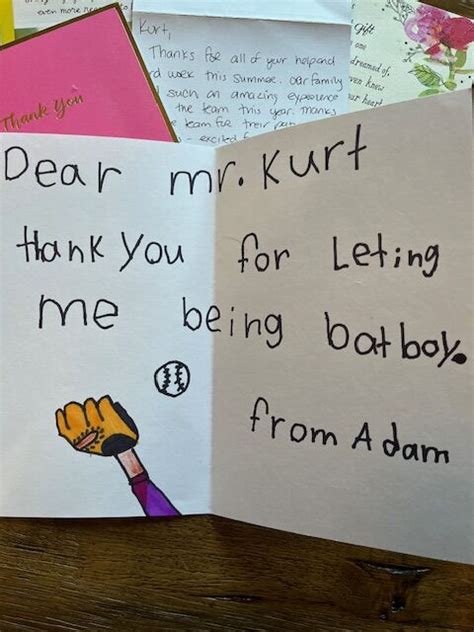 even more
Thank You
Kurt,
Thanks for all of your help and
rd work this summer. Our family
such an amazing experience
the team this year. Thanks
team for their
excited
gift
are
dreamed of,
ven know
ur heart
Dear mr. Kurt
thank you for Leting
me being batboy.
from Adam